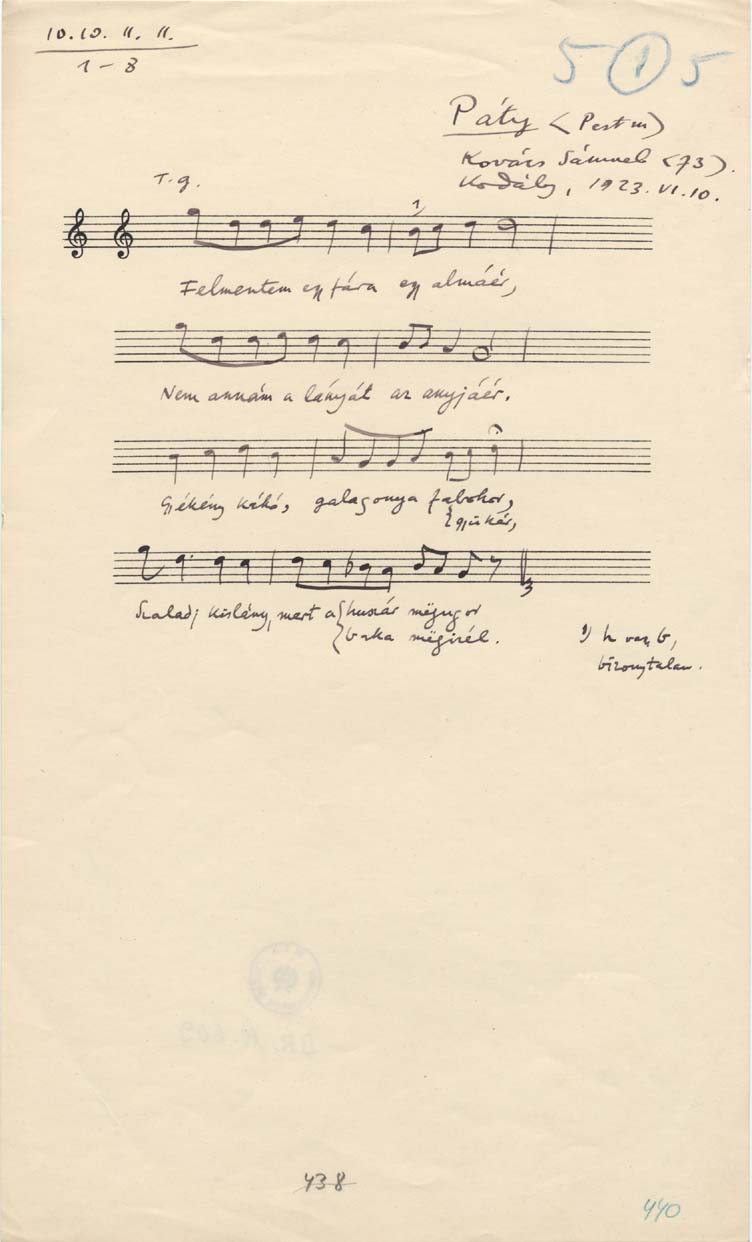 10. 10. 11. 11.
1 – 8
5 ① 5
Páty (Pest m)
Kovács Sámuel (73).
Kodály, 1923. VI. 10.
T. g.
1)
Felmentem egy fára egy almáér,
Nem annám a lányát az anyjáér.
Gyékény kákó, galagonya fabokor,
Szaladj kislány, mert a huszár mëgugor
baka mëgizél.
1) h vagy b,
bizonytalan.
438
440